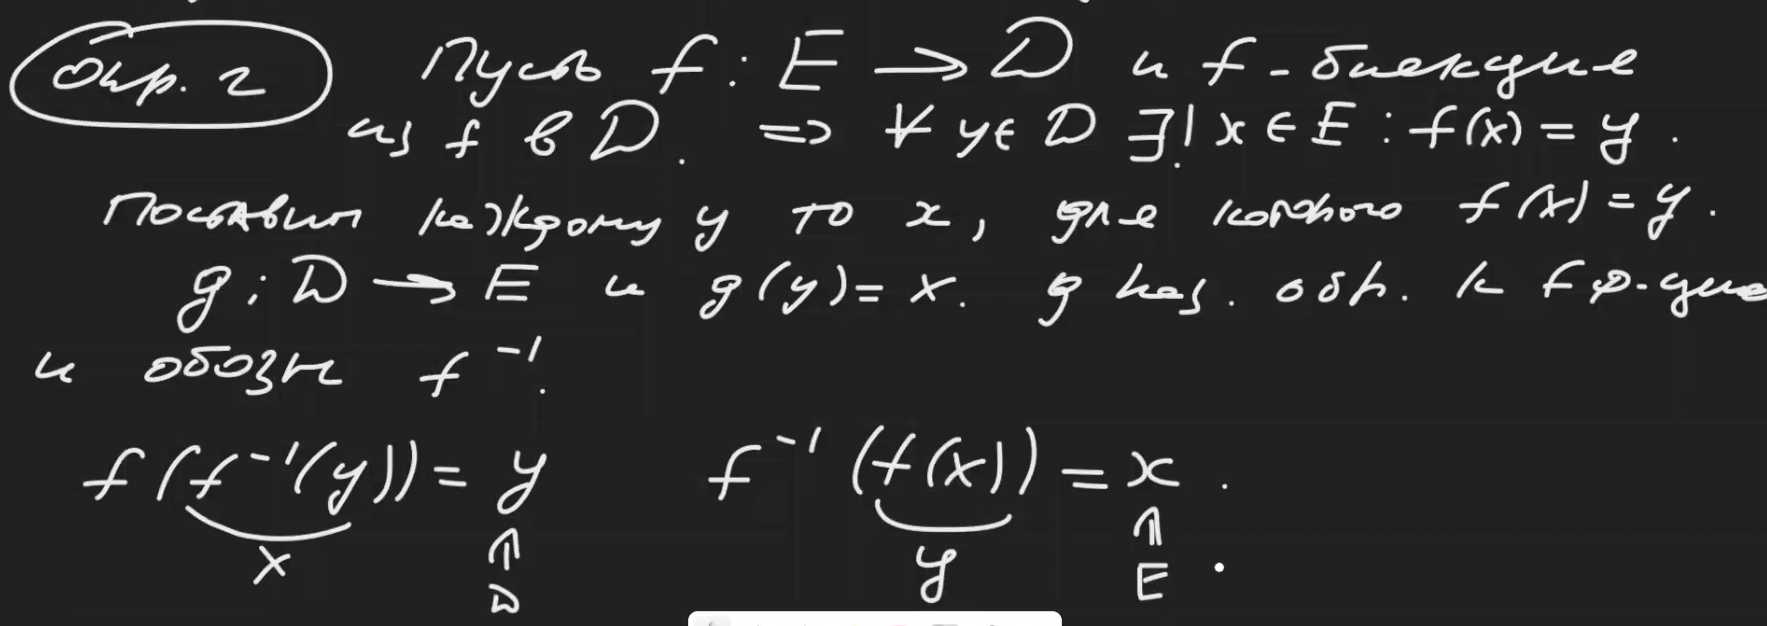 Опр. 2 Пусть f : E → D и f - биекция
из f в D. ⇒ ∀ y ∈ D ∃! x ∈ E : f(x) = y.
Поставим каждому y то x, для которого f(x) = y.
g : D → E и g(y) = x. g наз. обр. к f ф-цией
и обозн f⁻¹.
f(f⁻¹(y)) = y f⁻¹(f(x)) = x.
x ∈ D y ∈ E